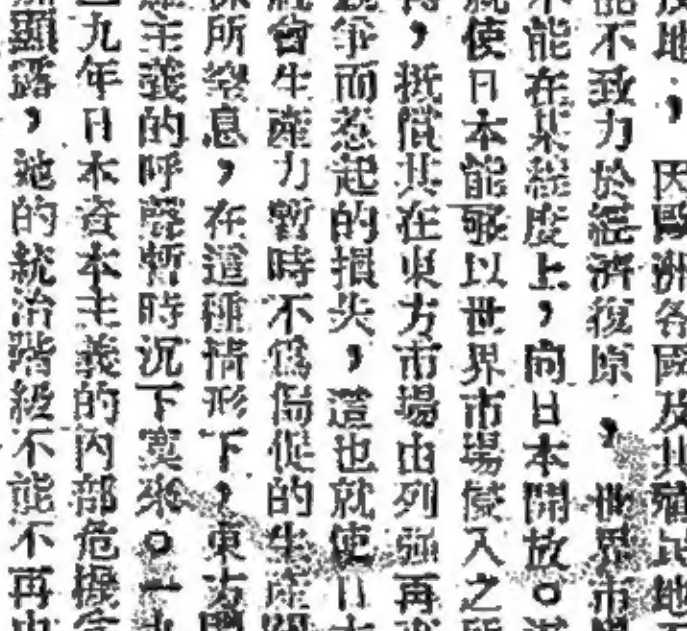 地，因歐洲各國及其殖民地
不致力於經濟復原，世界市
能在某程度上，向日本開放。
使日本能够以世界市場優入之所
，抵償其在東方市場由列强再
爭而惹起的損失，這也就使日本
會生產力暫時不為侷促的生產關
所窒息，在這種情形下，東方門
主義的呼聲暫時沉下寞來。一
九年日本資本主義的內部危機
顯露，她的統治階級不能不再